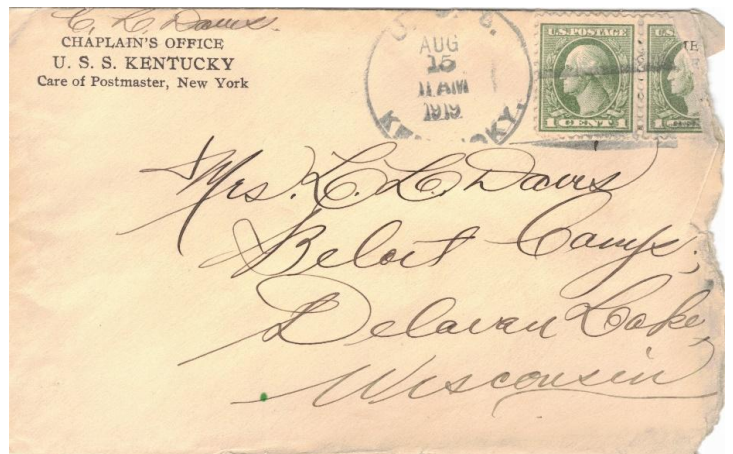 C. L. Davis.
CHAPLAIN'S OFFICE
U. S. S. KENTUCKY
Care of Postmaster, New York
U. S. S.
AUG
15
11 AM
1919
KENTUCKY.
U.S. POSTAGE
1 CENT 1
U.S.
1
Mrs. C. L. Davis
Beloit Camp,
Delavan Lake,
Wisconsin